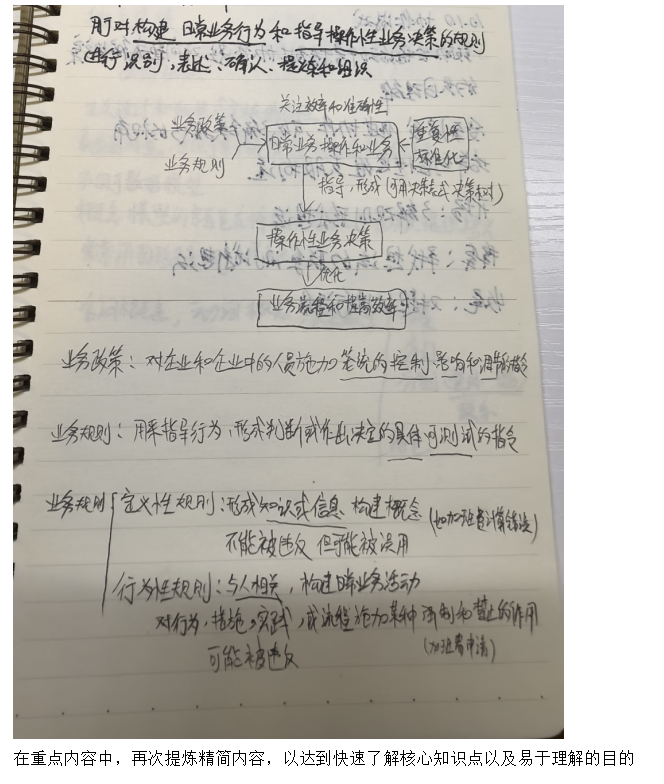 用对构建 日常业务行为和指导操作性业务决策的规则
进行识别,表述、确认、提炼和组织
关注效率和准确性
业务政策
业务规则
日常业务操作和业务
重复性
标准化
指导,形成(可用决策表或决策树)
操作性业务决策
优化
业务流程和提高效率
业务政策:对企业和企业中的人员施加笼统的控制,影响和调节的指令
业务规则:用来指导行为,形成判断或作出决定的具体可测试的指令
业务规则
定义性规则:形成知识或信息 构建概念 (如加班费计算错误)
不能被违反 但可能被误用
行为性规则:与人相关,构建日常业务活动
对行为,措施,实践,或流程施加某种 强制和禁止的作用
可能被违反 (加班费申请)
在重点内容中,再次提炼精简内容,以达到快速了解核心知识点以及易于理解的目的